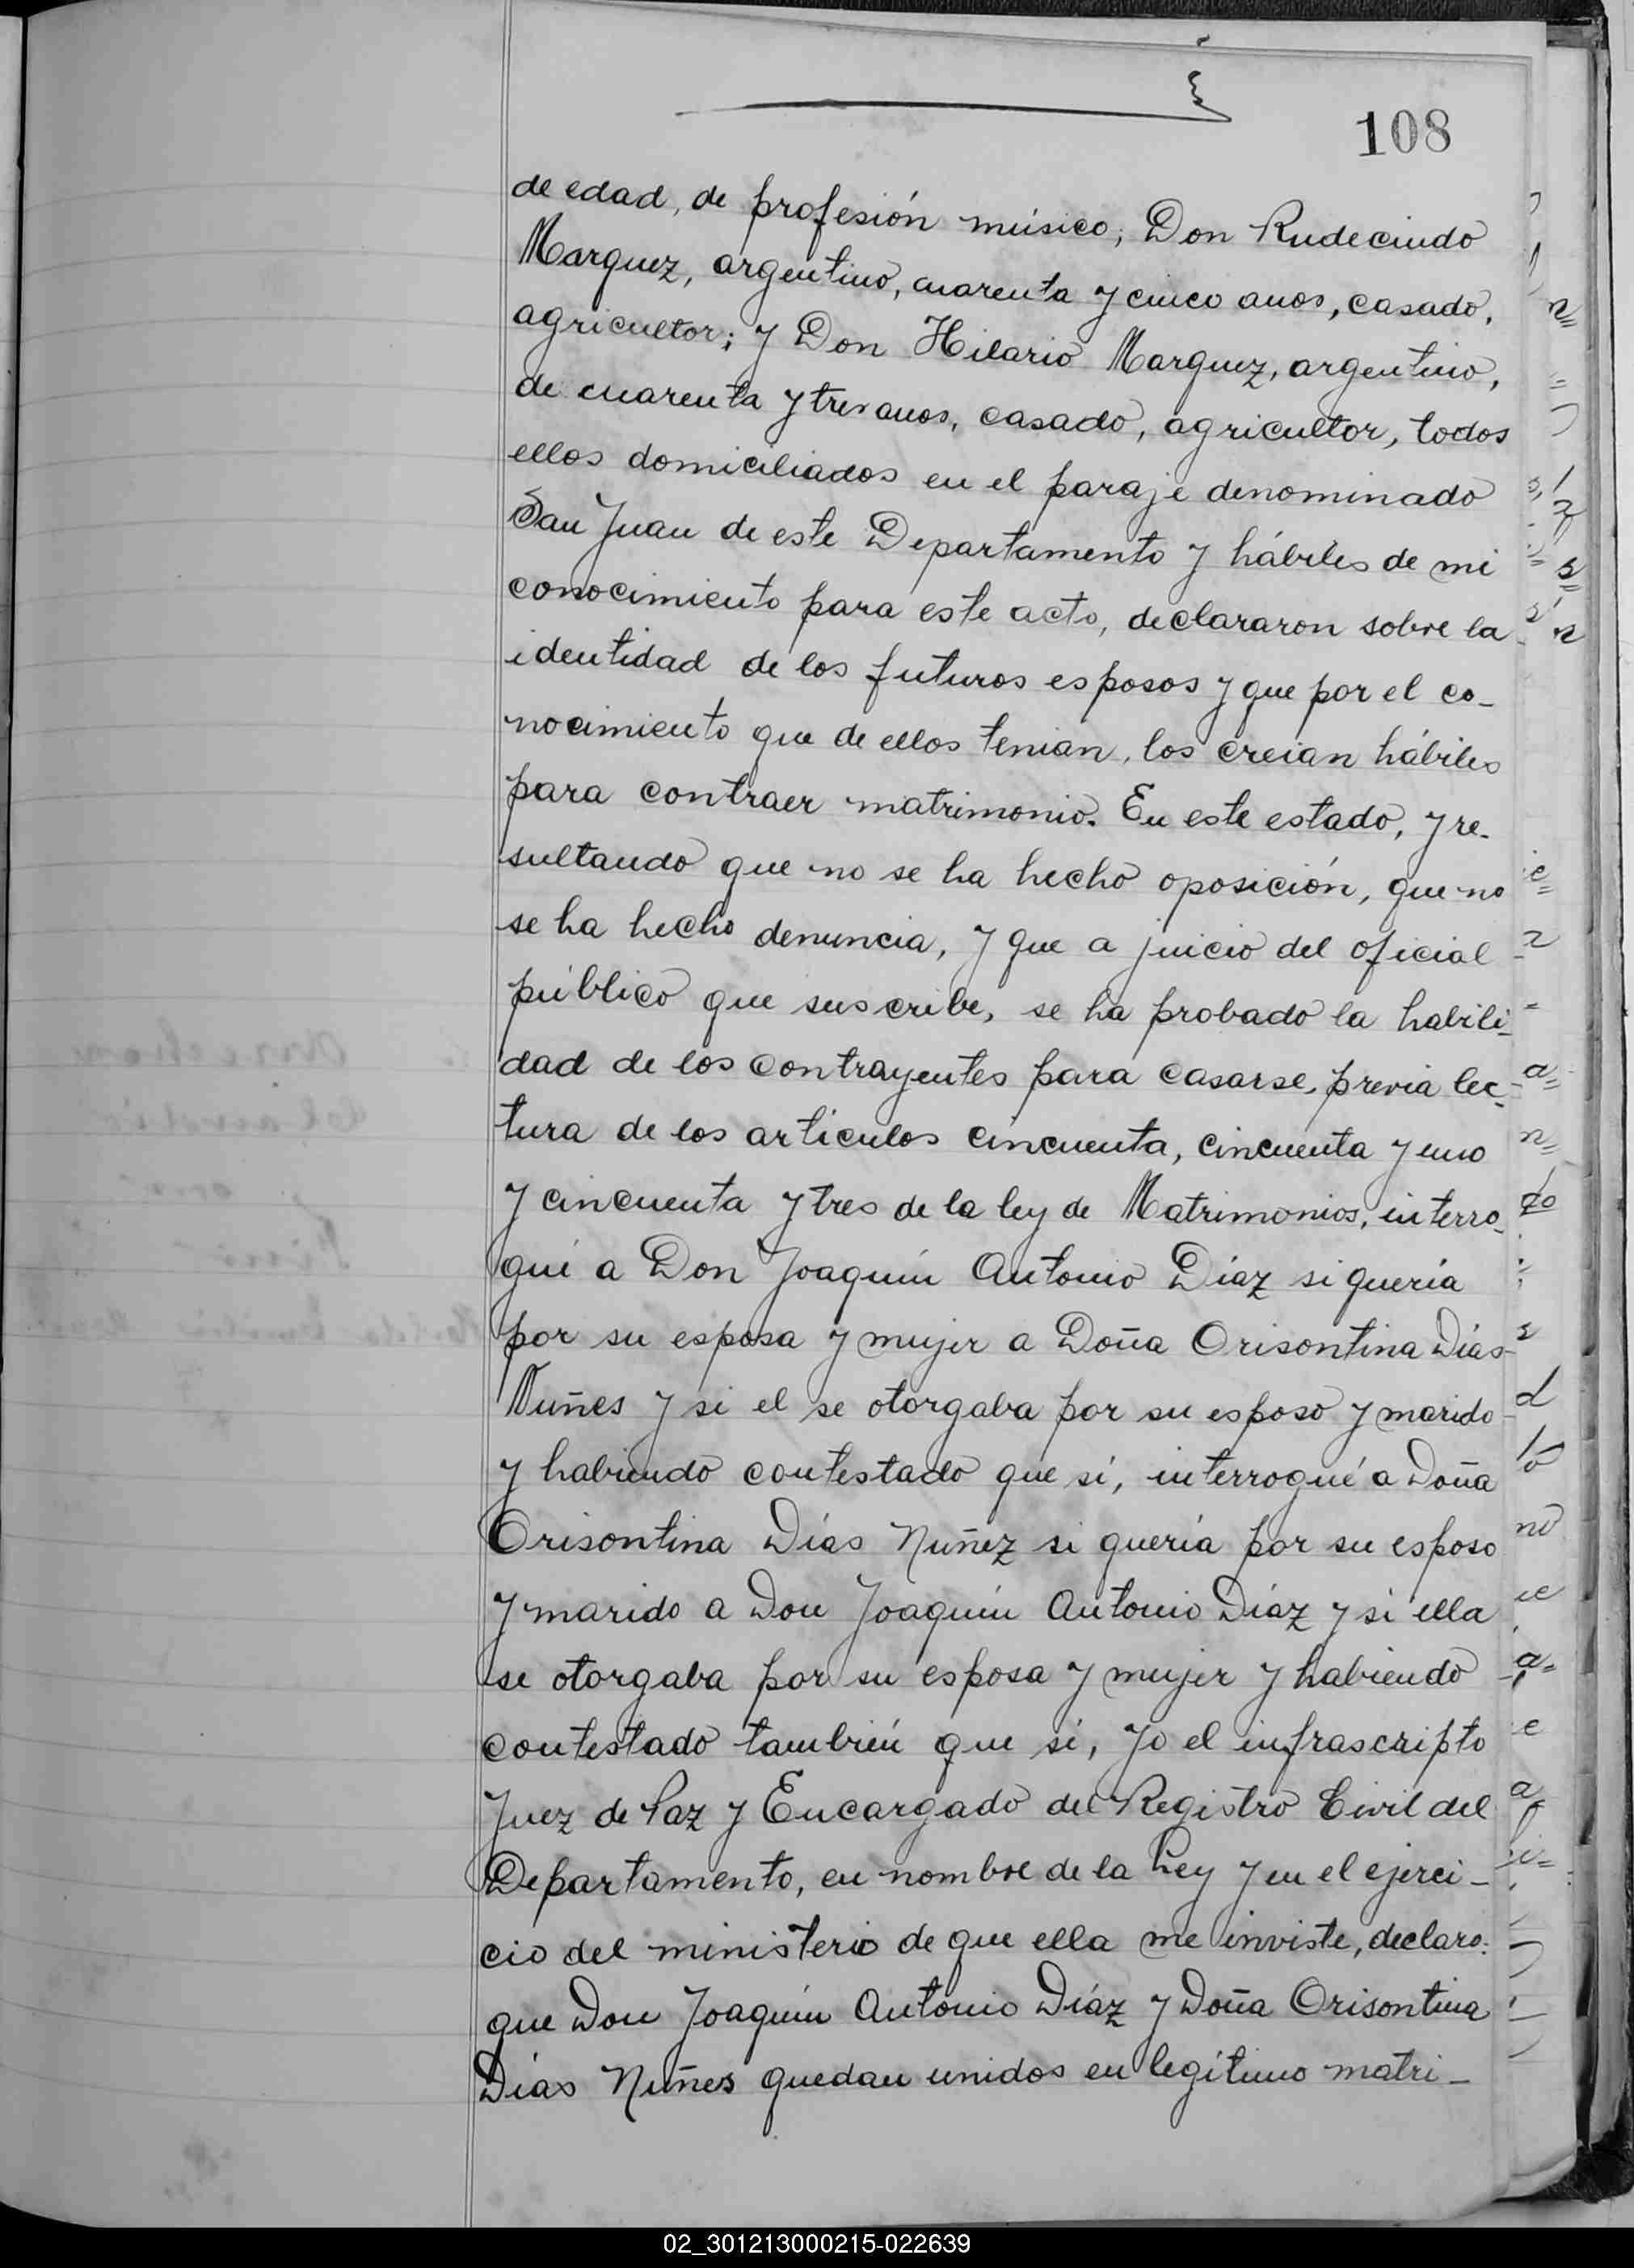 108
de edad, de profesión músico; Don Rudecindo
Marquez, argentino, cuarenta y cinco anos, casado,
agricultor; y Don Hilario Marquez, argentino,
de cuarenta y tres anos, casado, agricultor, todos
ellos domiciliados en el paraje denominado
San Juan de este Departamento y hábiles de mi
conocimiento para este acto, declararon sobre la
identidad de los futuros esposos y que por el co-
nocimiento que de ellos tenian, los creian hábiles
para contraer matrimonio. En este estado, y re-
sultando que no se ha hecho oposición, que no
se ha hecho denuncia, y que a juicio del oficial
público que suscribe, se ha probado la habili-
dad de los contrayentes para casarse, previa lec-
tura de los articulos cincuenta, cincuenta y uno
y cincuenta y tres de la ley de Matrimonios, interro-
gué a Don Joaquín Antonio Díaz si quería
por su esposa y mujer a Doña Orisontina Días
Nuñes y si el se otorgaba por su esposo y marido
y habiendo contestado que sí, interrogué a Doña
Orisontina Días Nuñez si quería por su esposo
y marido a Don Joaquín Antonio Díaz y si ella
se otorgaba por su esposa y mujer y habiendo
contestado también que sí, yo el infrascripto
Juez de Paz y Encargado del Registro Civil del
Departamento, en nombre de la Ley y en el ejerci-
cio del ministerio de que ella me inviste, declaro:
que Don Joaquín Antonio Díaz y Doña Orisontina
Días Nuñes quedan unidos en legítimo matri-
02_301213000215-022639